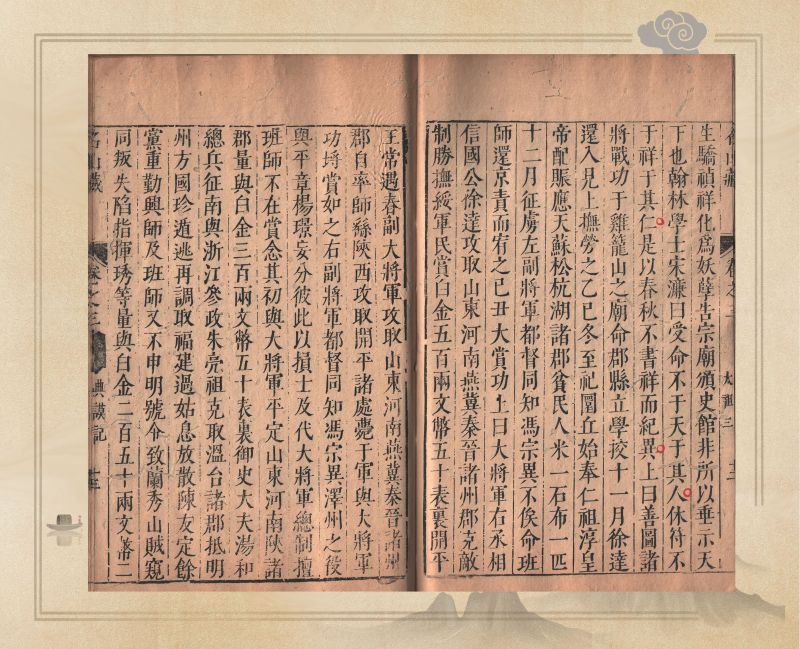 生驕禎祥化為妖孽告宗廟頒史館非所以垂示天
下也翰林學士宋濂曰受命不于天于其人休符不
于祥于其仁是以春秋不書祥而紀異上曰善圖諸
將戰功于雞籠山之廟命郡縣立學挍十一月徐達
還入見上撫勞之乙巳冬至祀圜丘始奉仁祖淳皇
帝配賑應天蘇松杭湖諸郡貧民人米一石布一匹
十二月征虜左副將軍都督同知馮宗異不俟命班
師還京責而宥之己丑大賞功上曰大將軍右丞相
信國公徐達攻取山東河南燕冀秦晉諸州郡克敵
制勝撫綏軍民賞白金五百兩文幣五十表裏開平
王常遇春副大將軍攻取山東河南燕冀秦晉諸州
郡自率師繇陝西攻取開平諸處薨于軍與大將軍
功埒賞如之右副將軍都督同知馮宗異澤州之役
與平章楊璟妄分彼此以損士及代大將軍總制擅
班師不在賞念其初與大將軍平定山東河南陝諸
郡量與白金三百兩文幣五十表裏御史大夫湯和
總兵征南與浙江叅政朱亮祖克取溫台諸郡抵明
州方國珍遁逃再調取福建過姑息放散陳友定餘
黨重勤興師及班師又不申明號令致蘭秀山賊窺
同叛失陷指揮琇等量與白金二百五十兩文幣二
名山藏
卷之三
典謨記